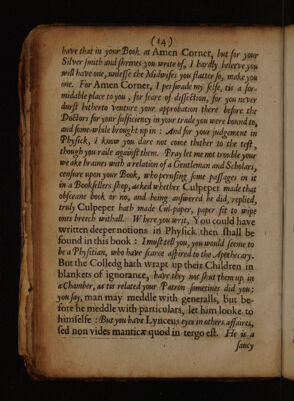 (14)
have that in your Book at Amen Corner, but for your
Silver smith and shrines you write of, I hardly beleeve you
will have one, unlesse the Midwifes you flatter so, make you
one. For Amen Corner, I perswade my selfe, tis a for-
midable place to you, for feare of dissection, for you never
durst hitherto venture your approbation there before the
Doctors for your sufficiency in your trade you were bound to,
and some-while brought up in : And for your judgement in
Physick, I know you dare not come thither to the test,
though you raile against them. Pray let me not trouble your
weake braines with a relation of a Gentleman and Scholars,
censure upon your Book, who perusing some passages in it
in a Booksellers shop, asked whether Culpeper made that
obsceane book or no, and being answered he did, replied,
truly Culpeper hath made Cul-paper, paper fit to wipe
ones breech withall. Where you writ, You could have
written deeper notions in Physick then shall be
found in this book : I must tell you, you would seeme to
be a Physitian, who have scarce aspired to the Apothecary.
But the Colledg hath wrapt up their Children in
blankets of ignorance, have they not shut them up in
a Chamber, as tis related your Patron sometimes did you;
you say, man may meddle with generalls, but be-
fore he meddle with particulars, let him looke to
himselfe : But you have Lynceus eyes in others affaires,
sed non vides manticæ quod in tergo est. He is a
saucy